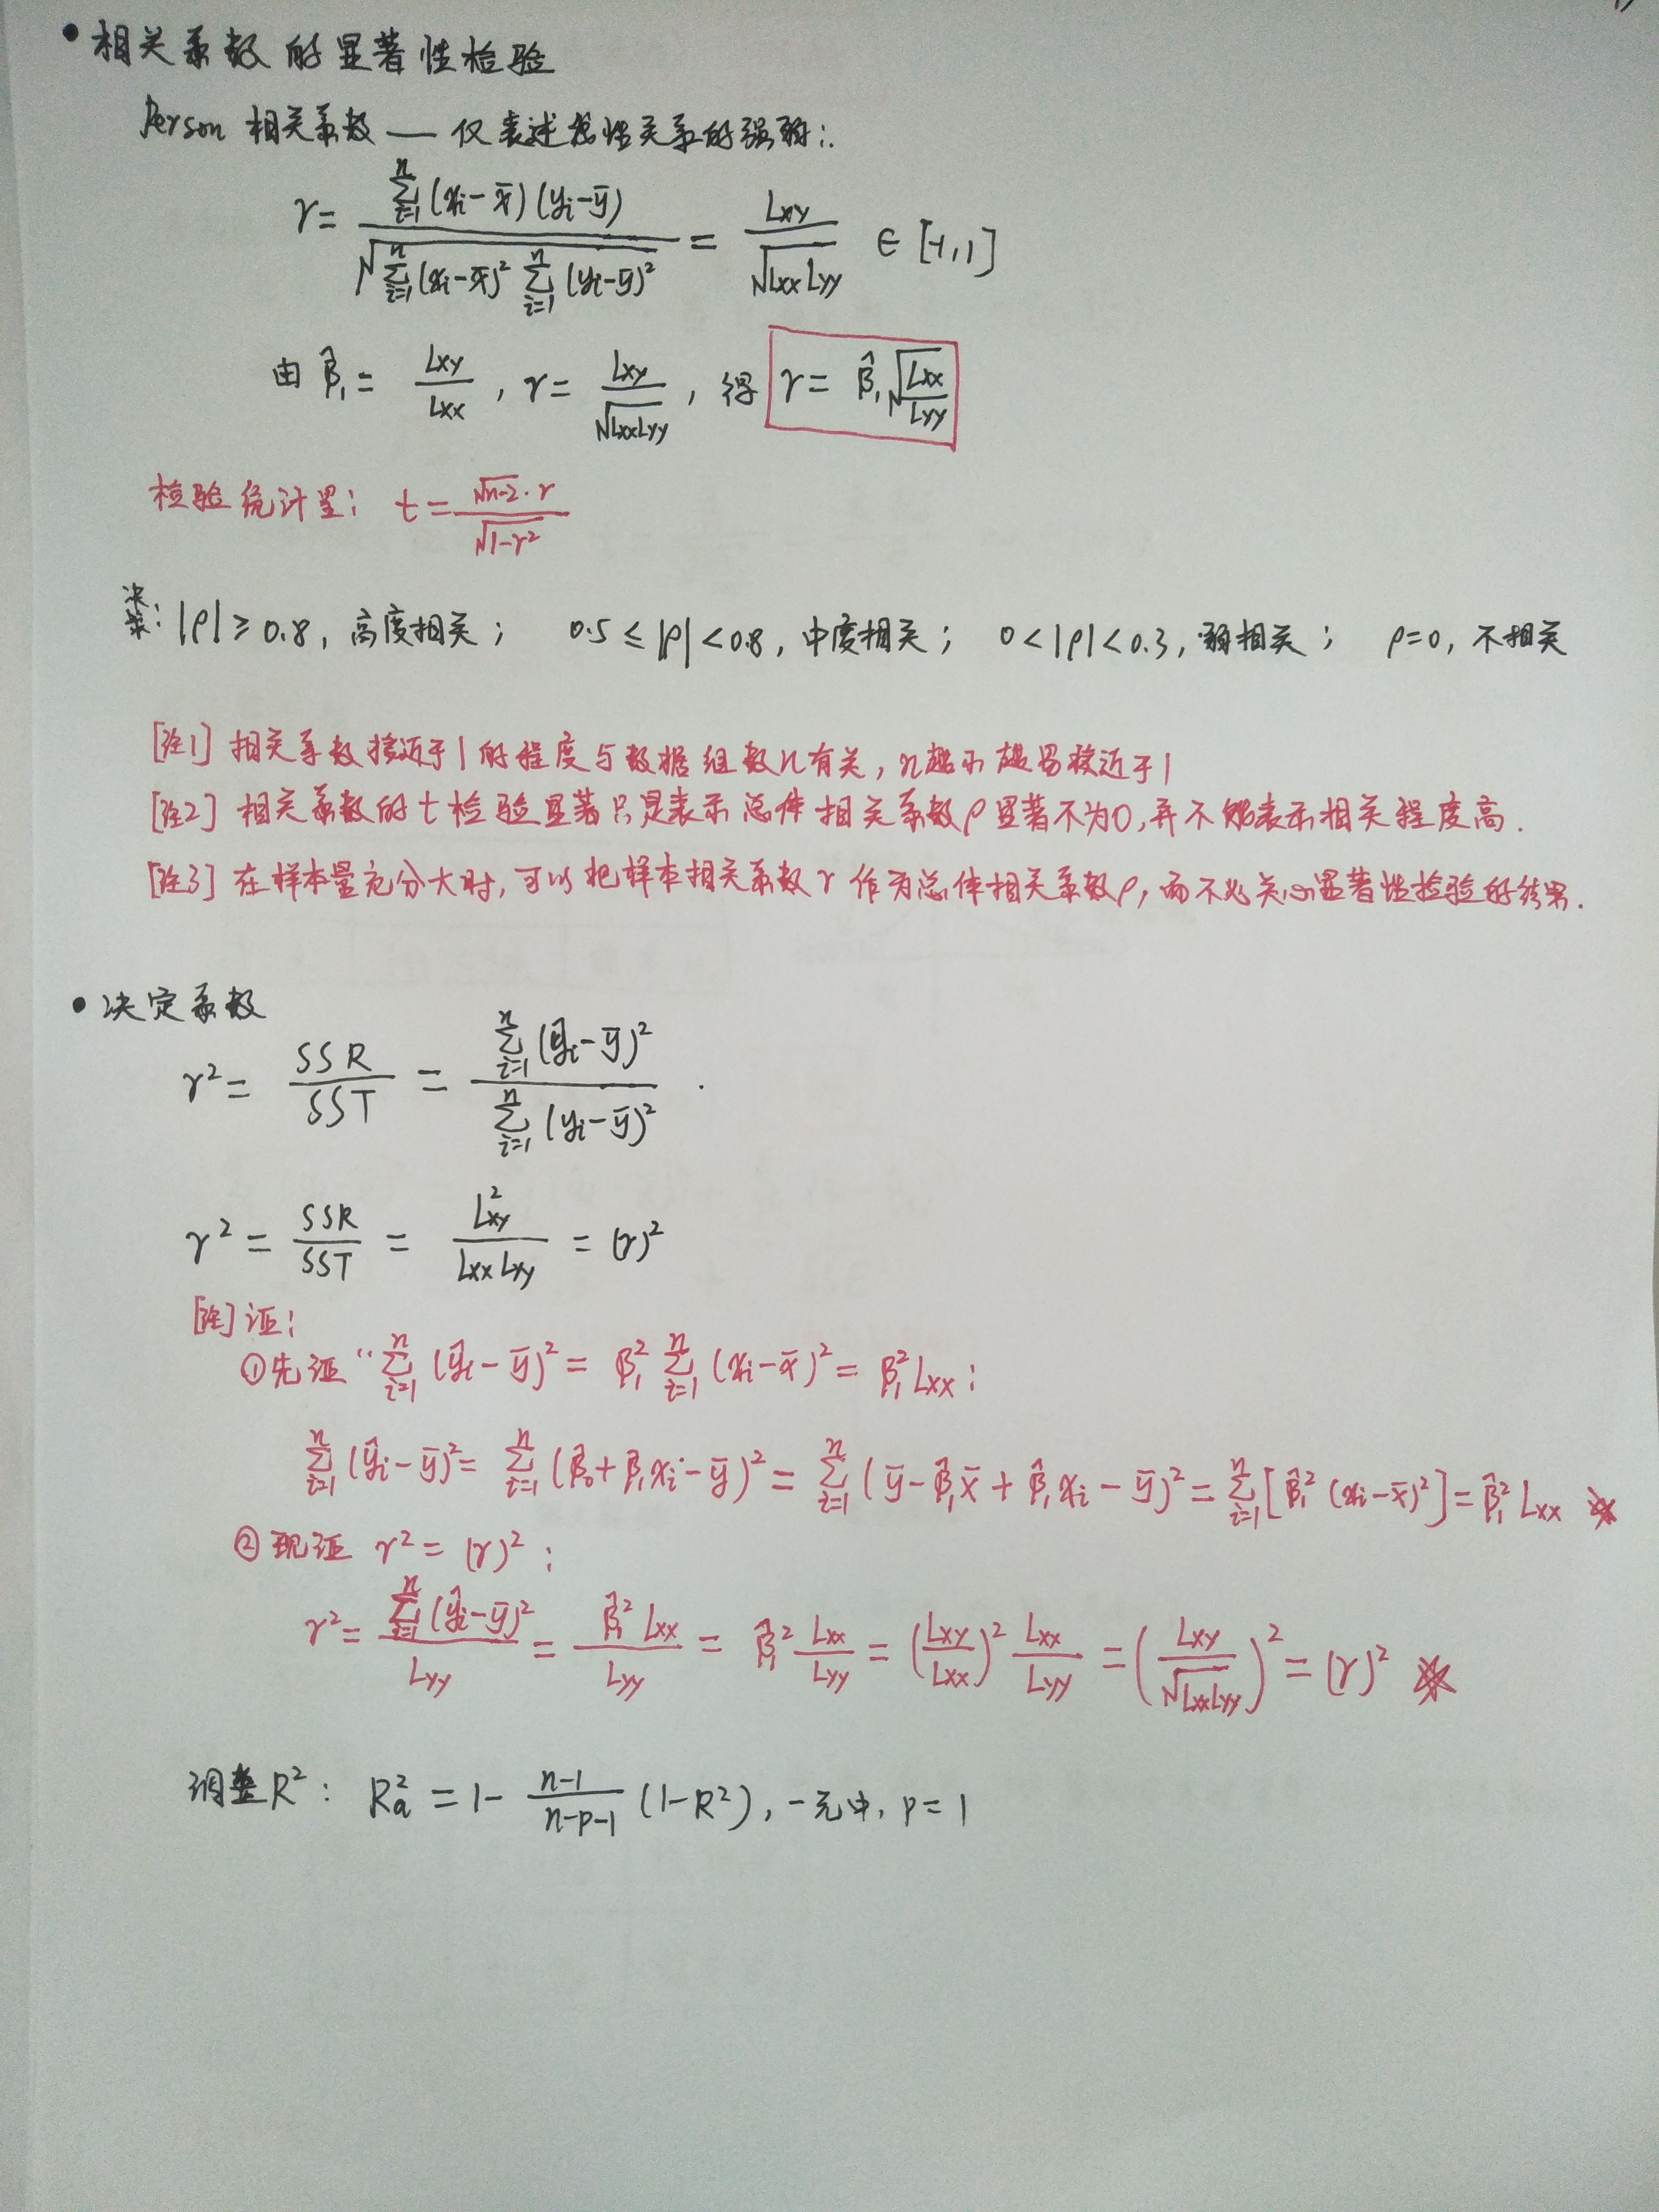 • 相关系数的显著性检验
Person 相关系数 — 仅表述线性关系的强弱:.
r = \frac{\sum_{i=1}^{n}(x_i-\bar{x})(y_i-\bar{y})}{\sqrt{\sum_{i=1}^{n}(x_i-\bar{x})^2\sum_{i=1}^{n}(y_i-\bar{y})^2}} = \frac{L_{xy}}{\sqrt{L_{xx}L_{yy}}} ∈ [-1,1]
由 \hat{β}_1 = \frac{L_{xy}}{L_{xx}}, r = \frac{L_{xy}}{\sqrt{L_{xx}L_{yy}}}, 得 r = \hat{β}_1\sqrt{\frac{L_{xx}}{L_{yy}}}
检验统计量: t = \frac{\sqrt{n-2}·r}{\sqrt{1-r^2}}
决策: |ρ| ≥ 0.8, 高度相关; 0.5 ≤ |ρ| < 0.8, 中度相关; 0 < |ρ| < 0.3, 弱相关; ρ=0, 不相关
[注1] 相关系数接近于1的程度与数据组数n有关, n越小越易接近于1
[注2] 相关系数的t检验显著只是表示总体相关系数ρ显著不为0, 并不能表示相关程度高.
[注3] 在样本量充分大时, 可以把样本相关系数r作为总体相关系数ρ, 而不必关心显著性检验的结果.
• 决定系数
r^2 = \frac{SSR}{SST} = \frac{\sum_{i=1}^{n}(\hat{y}_i-\bar{y})^2}{\sum_{i=1}^{n}(y_i-\bar{y})^2} .
r^2 = \frac{SSR}{SST} = \frac{L_{xy}^2}{L_{xx}L_{xy}} = (r)^2
[注] 证:
①先证 “\sum_{i=1}^{n}(\hat{y}_i-\bar{y})^2 = β_1^2\sum_{i=1}^{n}(x_i-\bar{x})^2 = β_1^2L_{xx}:
\sum_{i=1}^{n}(\hat{y}_i-\bar{y})^2 = \sum_{i=1}^{n}(\hat{β}_0+\hat{β}_1x_i-\bar{y})^2 = \sum_{i=1}^{n}(\bar{y}-\hat{β}_1\bar{x}+\hat{β}_1x_i-\bar{y})^2 = \sum_{i=1}^{n}[\hat{β}_1^2(x_i-\bar{x})^2] = \hat{β}_1^2L_{xx}
②现证 r^2 = (r)^2:
r^2 = \frac{\sum_{i=1}^{n}(\hat{y}_i-\bar{y})^2}{L_{yy}} = \frac{\hat{β}_1^2L_{xx}}{L_{yy}} = \hat{β}_1^2\frac{L_{xx}}{L_{yy}} = (\frac{L_{xy}}{L_{xx}})^2\frac{L_{xx}}{L_{yy}} = (\frac{L_{xy}}{\sqrt{L_{xx}L_{yy}}})^2 = (r)^2
调整R^2: R_a^2 = 1-\frac{n-1}{n-p-1}(1-R^2), 一元中, p=1